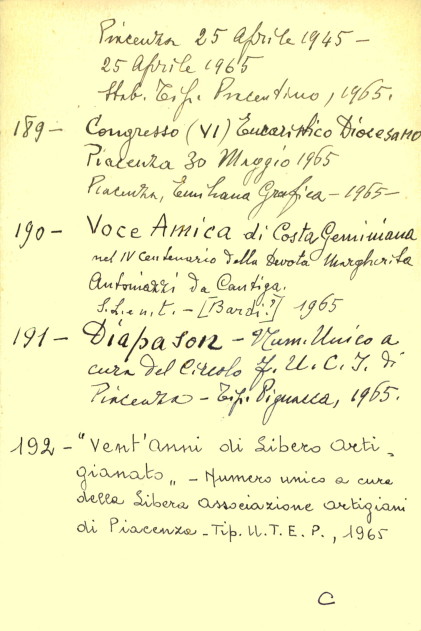 Piacenza 25 Aprile 1945 –
25 Aprile 1965
Stab. Tip. Piacentino, 1965.
189 – Congresso (VI) Eucaristico Diocesano
Piacenza 30 Maggio 1965
Piacenza, Emiliana Grafica – 1965 –
190 – Voce Amica di Costa Geminiana
nel IV Centenario della Devota Margherita
Antoniazzi da Cantiga.
S.l.e.n.t. – [Bardi?] 1965
191 – Diapason – Num. Unico a
cura del Circolo F.U.C.I. di
Piacenza – Tip. Pignacca, 1965.
192 – "Vent'Anni di Libero Arti-
gianato" – Numero unico a cura
della Libera Associazione artigiani
di Piacenza – Tip. U.T.E.P., 1965
C